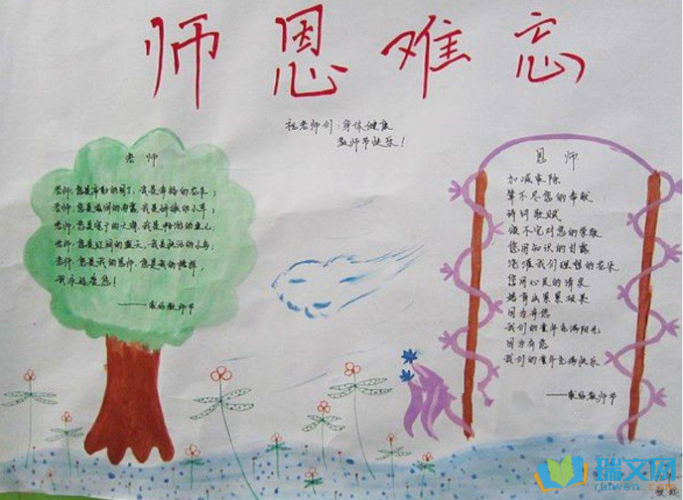 师恩难忘
祝老师们:身体健康
教师节快乐!
老师
老师,您是辛勤的园丁,我是幸福的花朵;
老师,您是滋润的雨露,我是娇嫩的小草;
老师,您是
老师,您是蓝天,我是快活的小鸟;
老师,您是我的恩师,您是我的榜样,
我永远爱您!
——献给教师节
恩师
加减乘除
算不尽您的奉献
诗词歌赋
颂不完对您的崇敬
您用知识的甘露
浇灌我们理想的花朵
您用心灵的清泉
培育成果累累
因为有您
我们的童年充满阳光
因为有您
我们的童年充满快乐
——献给教师节
瑞文网